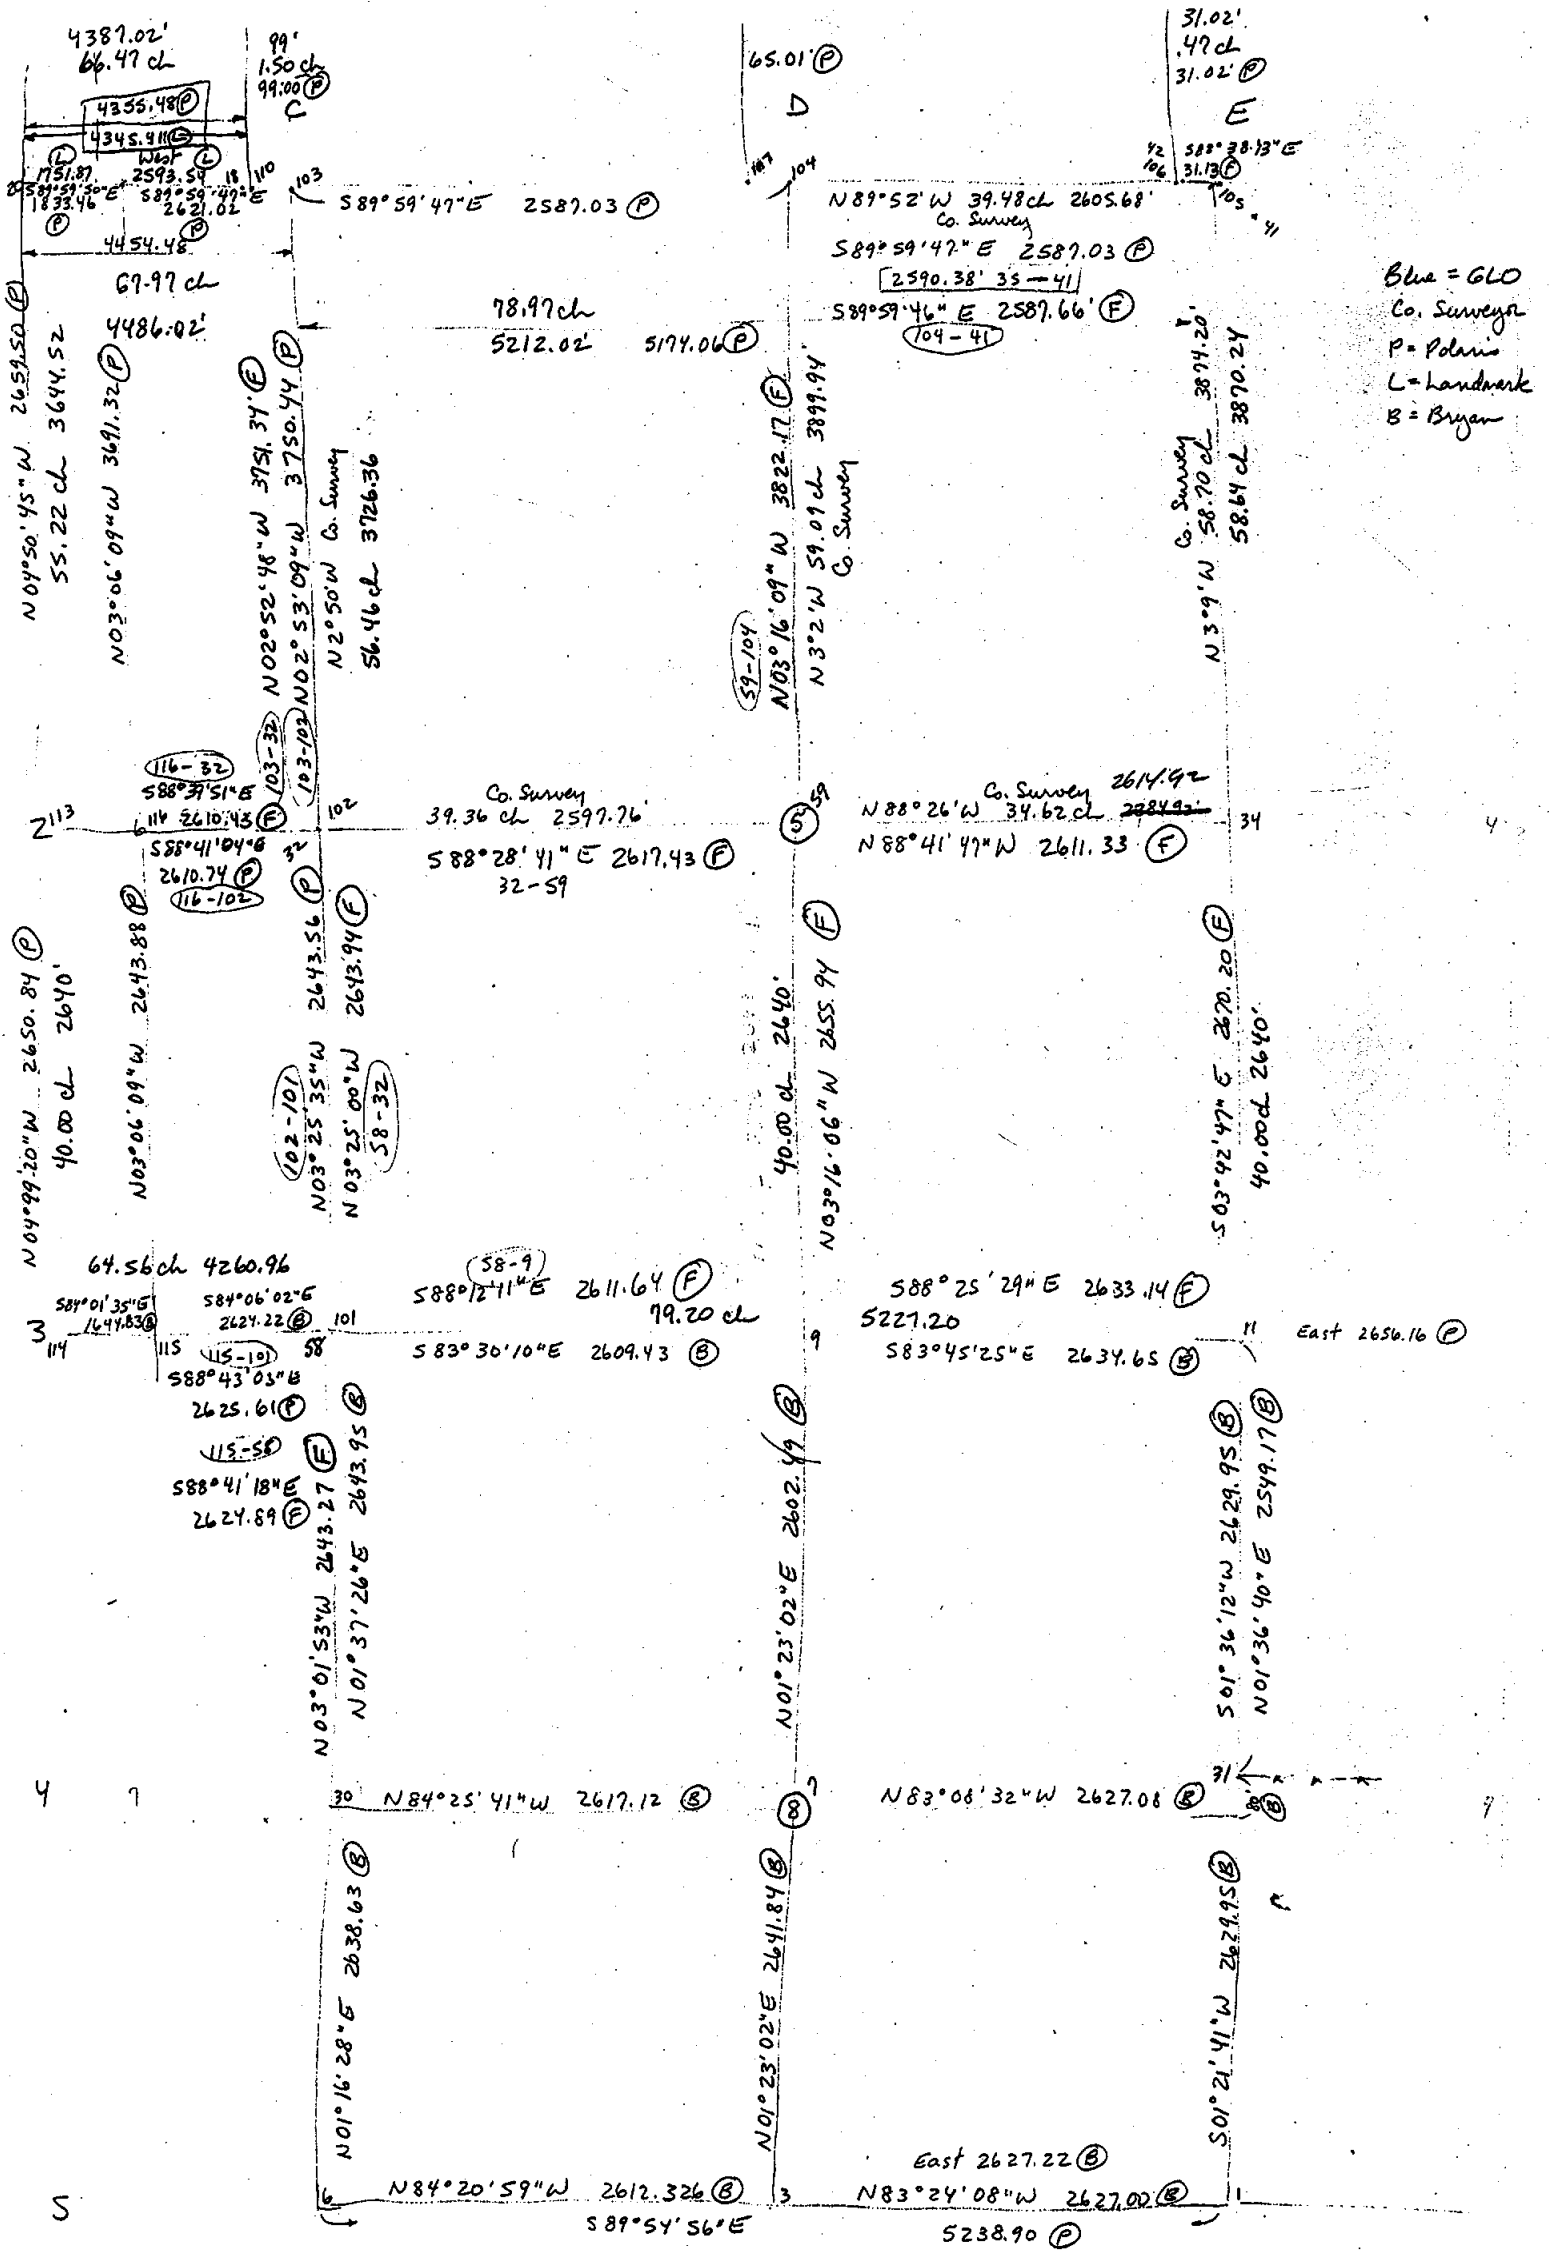 4387.02'
66.47 ch
99'
1.50 ch
99.00 (P)
C
65.01' (P)
D
31.02'
.47 ch
31.02' (P)
E
4355.48 (P)
4345.41 (L)
(L) West (L)
1751.87 2593.54 18 110
S89°59'50"E S89°59'47"E
1833.46 2621.02
(P) (P)
4454.48
67.97 ch
4486.02'
103
S89°59'47"E 2587.03 (P)
107 104
42 S88°38'13"E
106 31.13 (F)
105
41
N89°52'W 39.48ch 2605.68'
Co. Survey
S89°59'47"E 2587.03 (P)
2590.38' 35-41
S89°59'46"E 2587.66' (F)
104-41
78.97ch
5212.02' 5174.06 (P)
Blue = GLO
Co. Surveyor
P = Polaris
L = Landmark
B = Bryan
N04°50'45"W 2659.50 (P)
55.22 ch 3644.52
N03°06'09"W 3691.32 (P)
N02°52'48"W 3751.34' (F)
103-32
N02°53'09"W 3750.44 (P)
103-102
N2°50'W Co. Survey
56.46 ch 3726.36
59-104
N03°16'09"W 3822.17 (F)
N3°2'W 59.09ch 3899.94'
Co. Survey
Co. Survey
N3°9'W 58.70 ch 3874.20'
58.64 ch 3870.24
116-32
S88°39'51"E
2 113
6 116 2610.43 (F)
S88°41'04"E 32
2610.74 (P)
116-102
102
Co. Survey
39.36 ch 2597.76'
S88°28'41"E 2617.43 (F)
32-59
59
Co. Survey 2614.92
N88°26'W 34.62ch
N88°41'47"W 2611.33 (F)
34
4
N04°49'20"W 2650.84 (P)
40.00 ch 2640'
N03°06'09"W 2643.88 (P)
102-101
N03°25'35"W 2643.56 (P)
N03°25'00"W 2643.94 (F)
58-32
40.00 ch 2640'
N03°16'06"W 2655.94 (F)
S03°42'47"E 2670.20 (F)
40.00ch 2640'
64.56ch 4260.96
S84°01'35"E S84°06'02"E
1644.83 (B) 2624.22 (B) 101
3 114 115 115-101 58
S88°43'03"E
2625.61 (P)
115-58
S88°41'18"E
2624.89 (F)
58-9
S88°12'11"E 2611.64 (F)
79.20 ch
S83°30'10"E 2609.43 (B)
9
S88°25'29"E 2633.14 (F)
5227.20
S83°45'25"E 2634.65 (B)
11
East 2656.16 (P)
N03°01'53"W 2643.27 (F)
N01°37'26"E 2643.95 (B)
N01°23'02"E 2602.49 (B)
S01°36'12"W 2629.95 (B)
N01°36'40"E 2549.17 (B)
4 7
30 N84°25'41"W 2617.12 (B)
(8) 7
N83°08'32"W 2627.08 (B)
31
8 (B)
N01°16'28"E 2638.63 (B)
N01°23'02"E 2641.84 (B)
S01°21'41"W 2629.95 (B)
5
6 N84°20'59"W 2612.326 (B) 3
S89°54'56"E
East 2627.22 (B)
N83°24'08"W 2627.00 (B) 1
5238.90 (P)